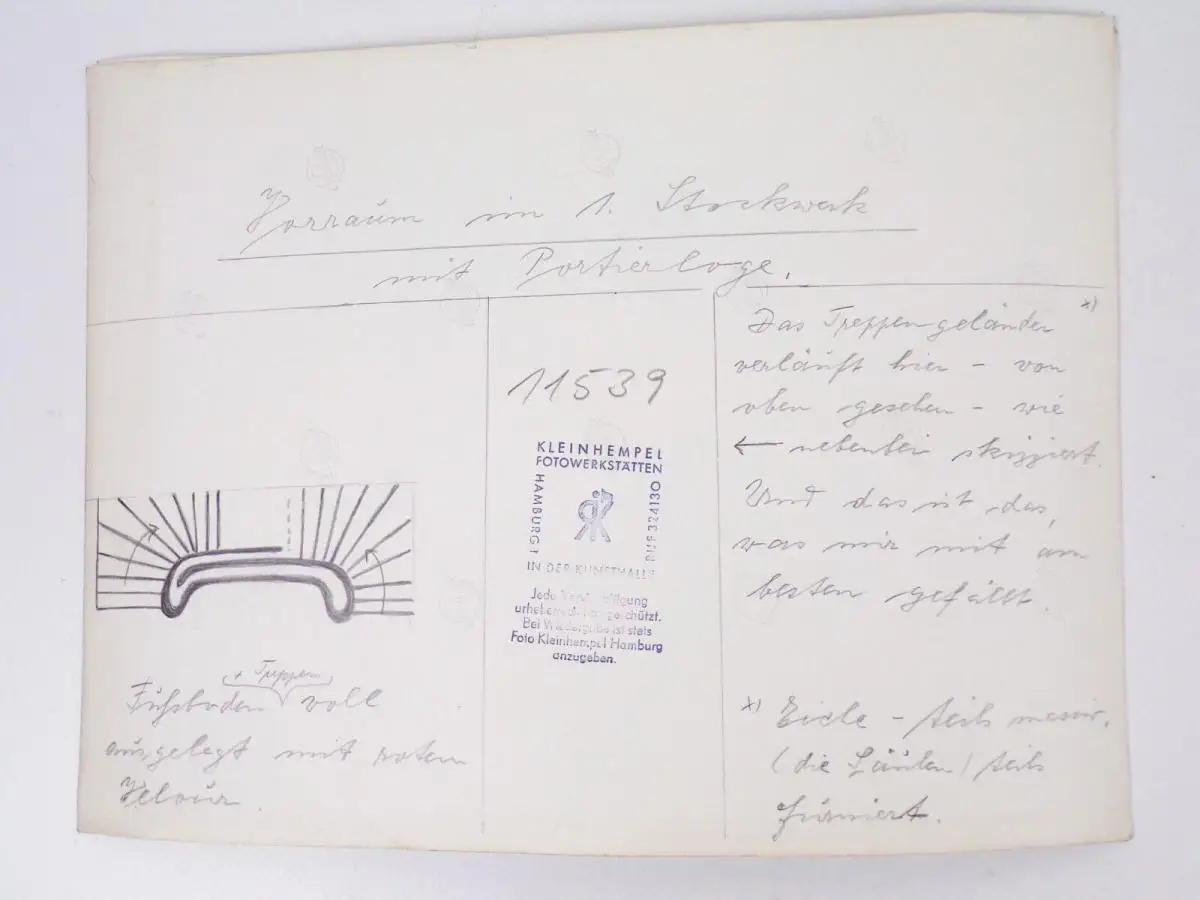 Vorraum im 1. Stockwerk
mit Portierloge.
+ Treppen
Fußboden voll
ausgelegt mit rotem
Velour.
11539
KLEINHEMPEL
FOTOWERKSTÄTTEN
HAMBURG 1
RUF 324130
IN DER KUNSTHALLE
Jede Vervielfältigung
urheberrechtl. geschützt.
Bei Wiedergabe ist stets
Foto Kleinhempel Hamburg
anzugeben.
Das Treppengeländer x)
verläuft hier – von
oben gesehen – wie
← nebenbei skizziert.
Und das ist das,
was mir mit am
besten gefällt.
x) Eiche – teils massiv.
(die Säulen) teils
furniert.